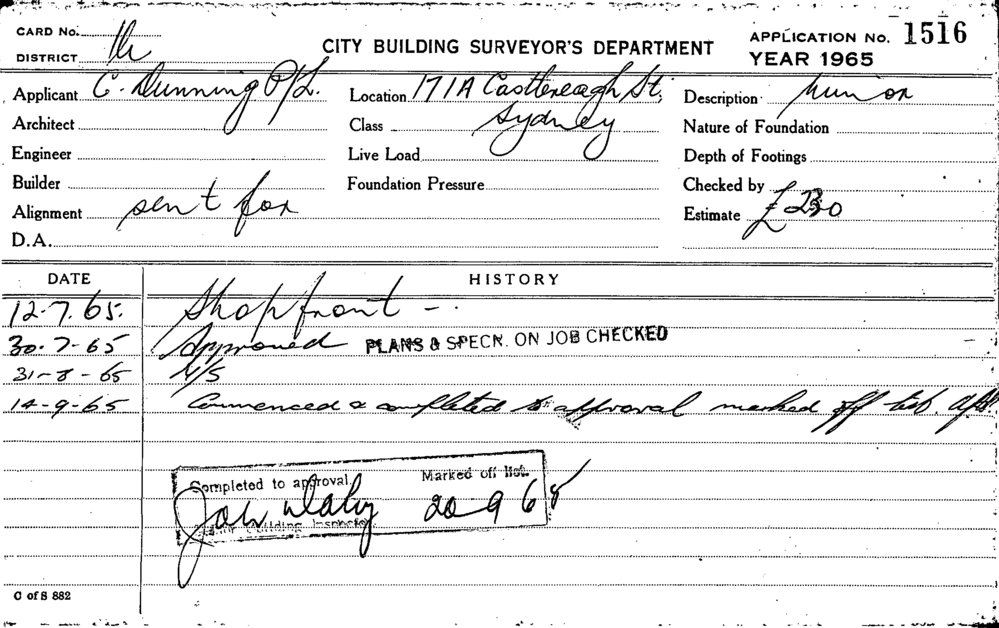 CARD No.
DISTRICT
CITY BUILDING SURVEYOR'S DEPARTMENT
APPLICATION No. 1516
YEAR 1965
Applicant C. Dunning P/L.
Location 171A Castlereagh St, Sydney
Description minor
Architect
Class
Nature of Foundation
Engineer
Live Load
Depth of Footings
Builder
Foundation Pressure
Checked by
Alignment sent for
Estimate £ 230
D.A.
DATE HISTORY
12.7.65. Shopfront -
30.7-65 Approved PLANS & SPECN. ON JOB CHECKED
31-8-65 N/S
14-9-65 Commenced & completed to approval marked off list.
Completed to approval. Marked off list.
20 9 65
Building Inspector
C of S 882